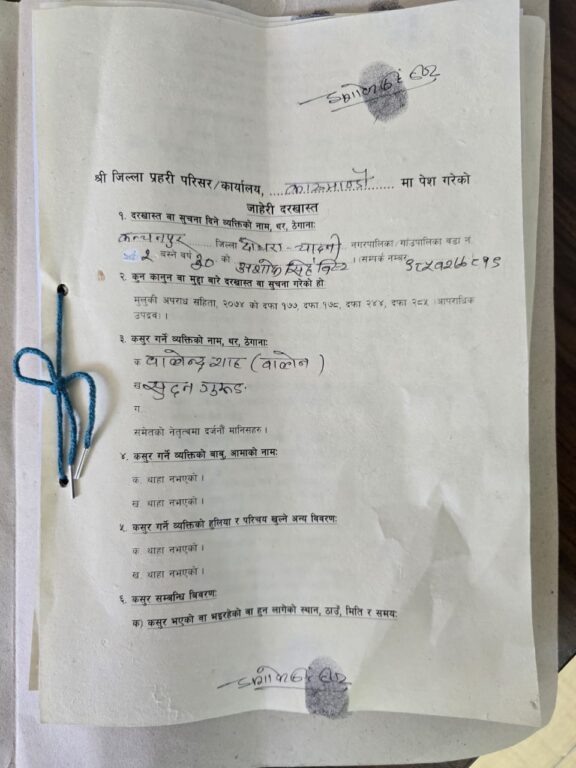 श्री जिल्ला प्रहरी परिसर/कार्यालय, काठमाण्डौ मा पेश गरेको
जाहेरी दरखास्त
१. दरखास्त वा सुचना दिने व्यक्तिको नाम, थर, ठेगानाः
कन्चनपुर जिल्ला दोधारा-चादनी नगरपालिका/गाउँपालिका वडा नं.
२ बस्ने वर्ष ३० को अशोक सिंह विष्ट । (सम्पर्क नम्बर
२. कुन कानुन वा मुद्दा बारे दरखास्त वा सुचना गरेको हो
मुलुकी अपराध संहिता, २०७४ को दफा १७७, दफा १७८, दफा २४४, दफा २८५ (आपराधिक
उपद्रव) ।
३. कसुर गर्ने व्यक्तिको नाम, थर, ठेगानाः
क. वालेन्द्र शाह (वालेन)
ख. सुदन गुरूङ
ग.
समेतको नेतृत्वमा दर्जनौं मानिसहरु ।
४. कसुर गर्ने व्यक्तिको बाबु, आमाको नामः
क. थाहा नभएको ।
ख. थाहा नभएको ।
५. कसुर गर्ने व्यक्तिको हुलिया र परिचय खुल्ने अन्य विवरणः
क. थाहा नभएको ।
ख. थाहा नभएको ।
६. कसुर सम्बन्धि विवरणः
क) कसुर भएको वा भइरहेको वा हुन लागेको स्थान, ठाउँ, मिति र समयः